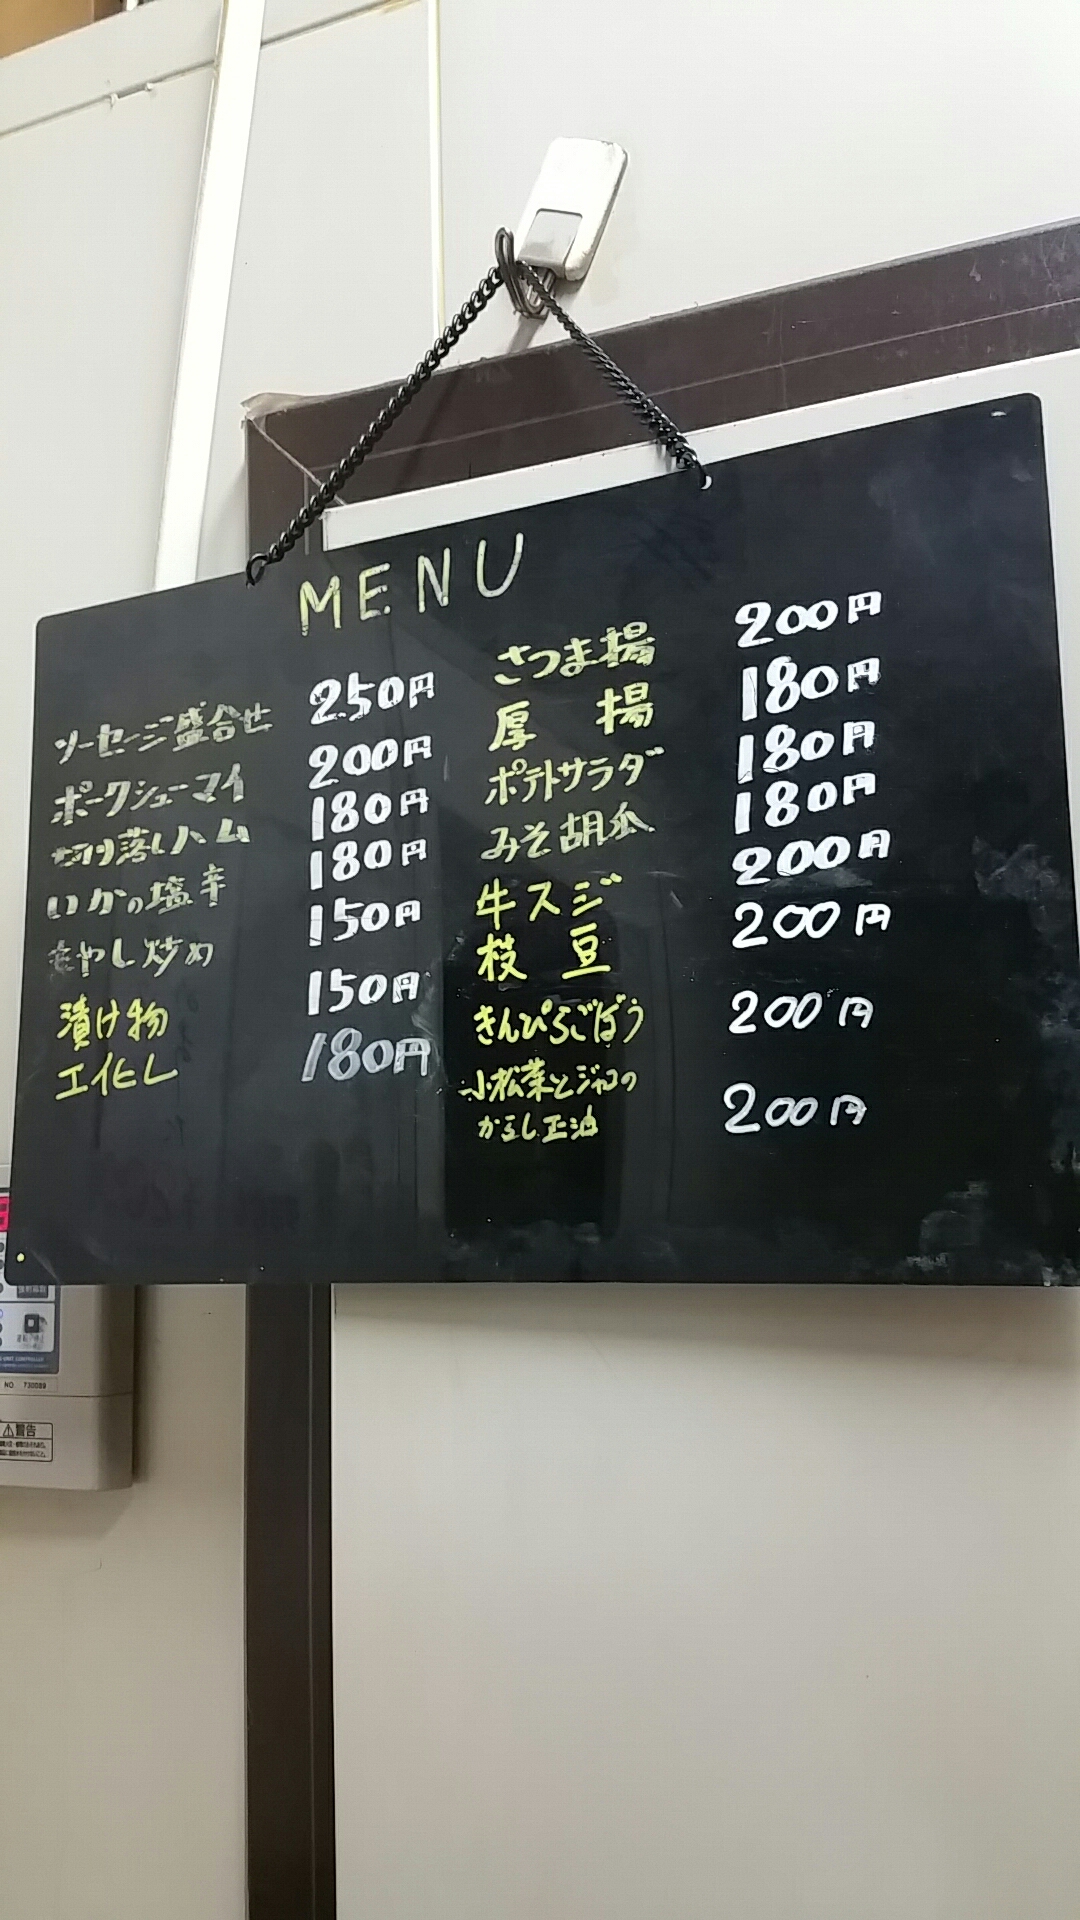 MENU
ソーセージ盛合せ 250円
ポークシューマイ 200円
切り落しハム 180円
いかの塩辛 180円
もやし炒め 150円
漬け物 150円
エイヒレ 180円
さつま揚 200円
厚揚 180円
ポテトサラダ 180円
みそ胡瓜 180円
牛スジ 200円
枝豆 200円
きんぴらごぼう 200円
小松菜とジャコの
からし正油 200円
NO 730089
警告